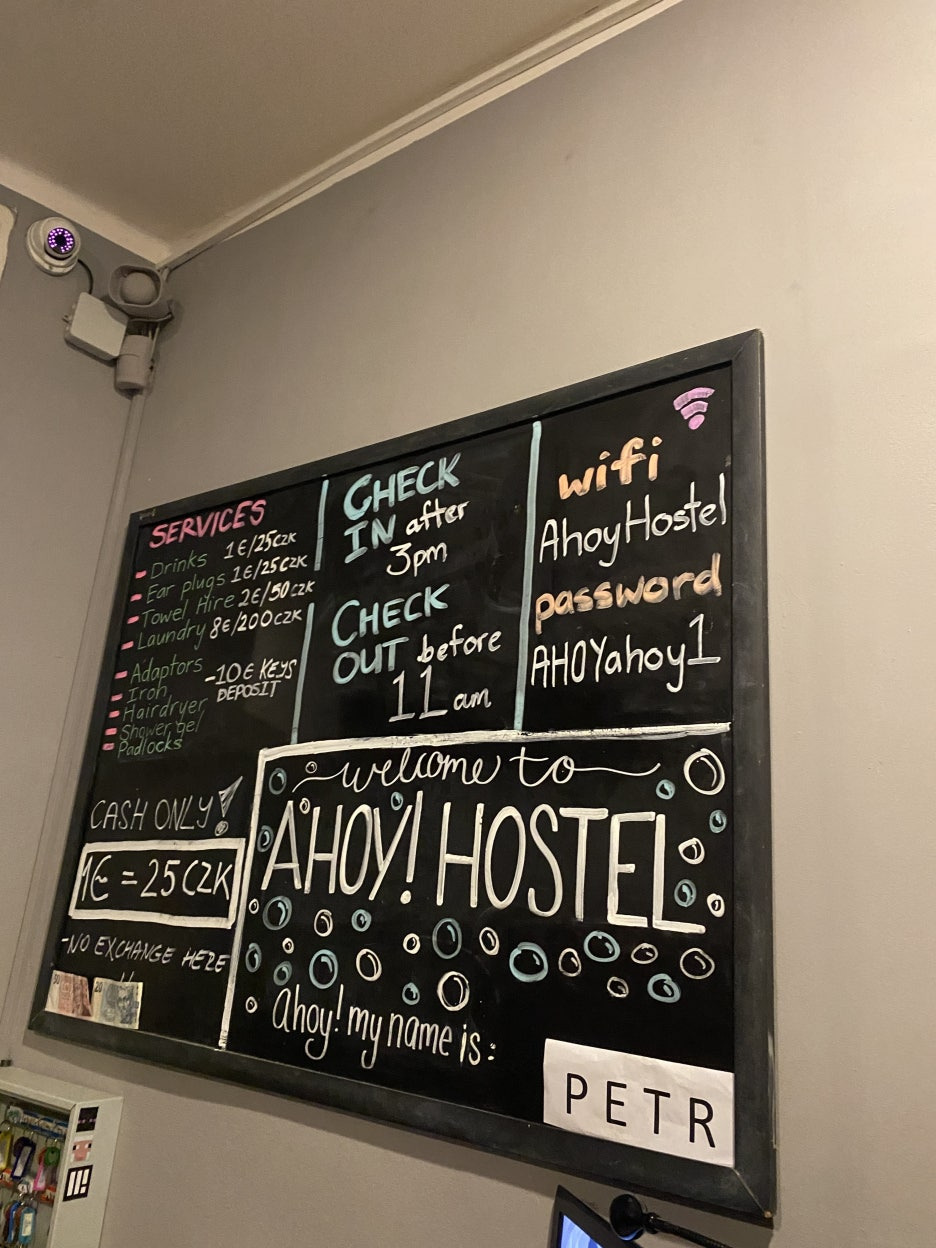 SERVICES
- Drinks 1€/25CZK
- Ear plugs 1€/25CZK
- Towel Hire 2€/50CZK
- Laundry 8€/200CZK
- Adaptors
- Iron
- Hairdryer
- Shower gel
- Padlocks
-10€ KEYS
DEPOSIT
CASH ONLY!
1€ = 25 CZK
-NO EXCHANGE HERE
CHECK
IN after
3pm
CHECK
OUT before
11 am
wifi
AhoyHostel
password
AHOYahoy1
welcome to
AHOY! HOSTEL
Ahoy! my name is:
PETR